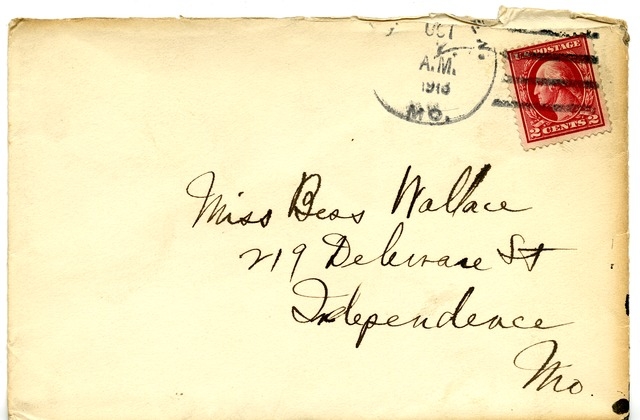 OCT
A.M.
1913
MO.
U.S. POSTAGE
2 CENTS 2
Miss Bess Wallace
219 Delaware St
Independence
Mo.